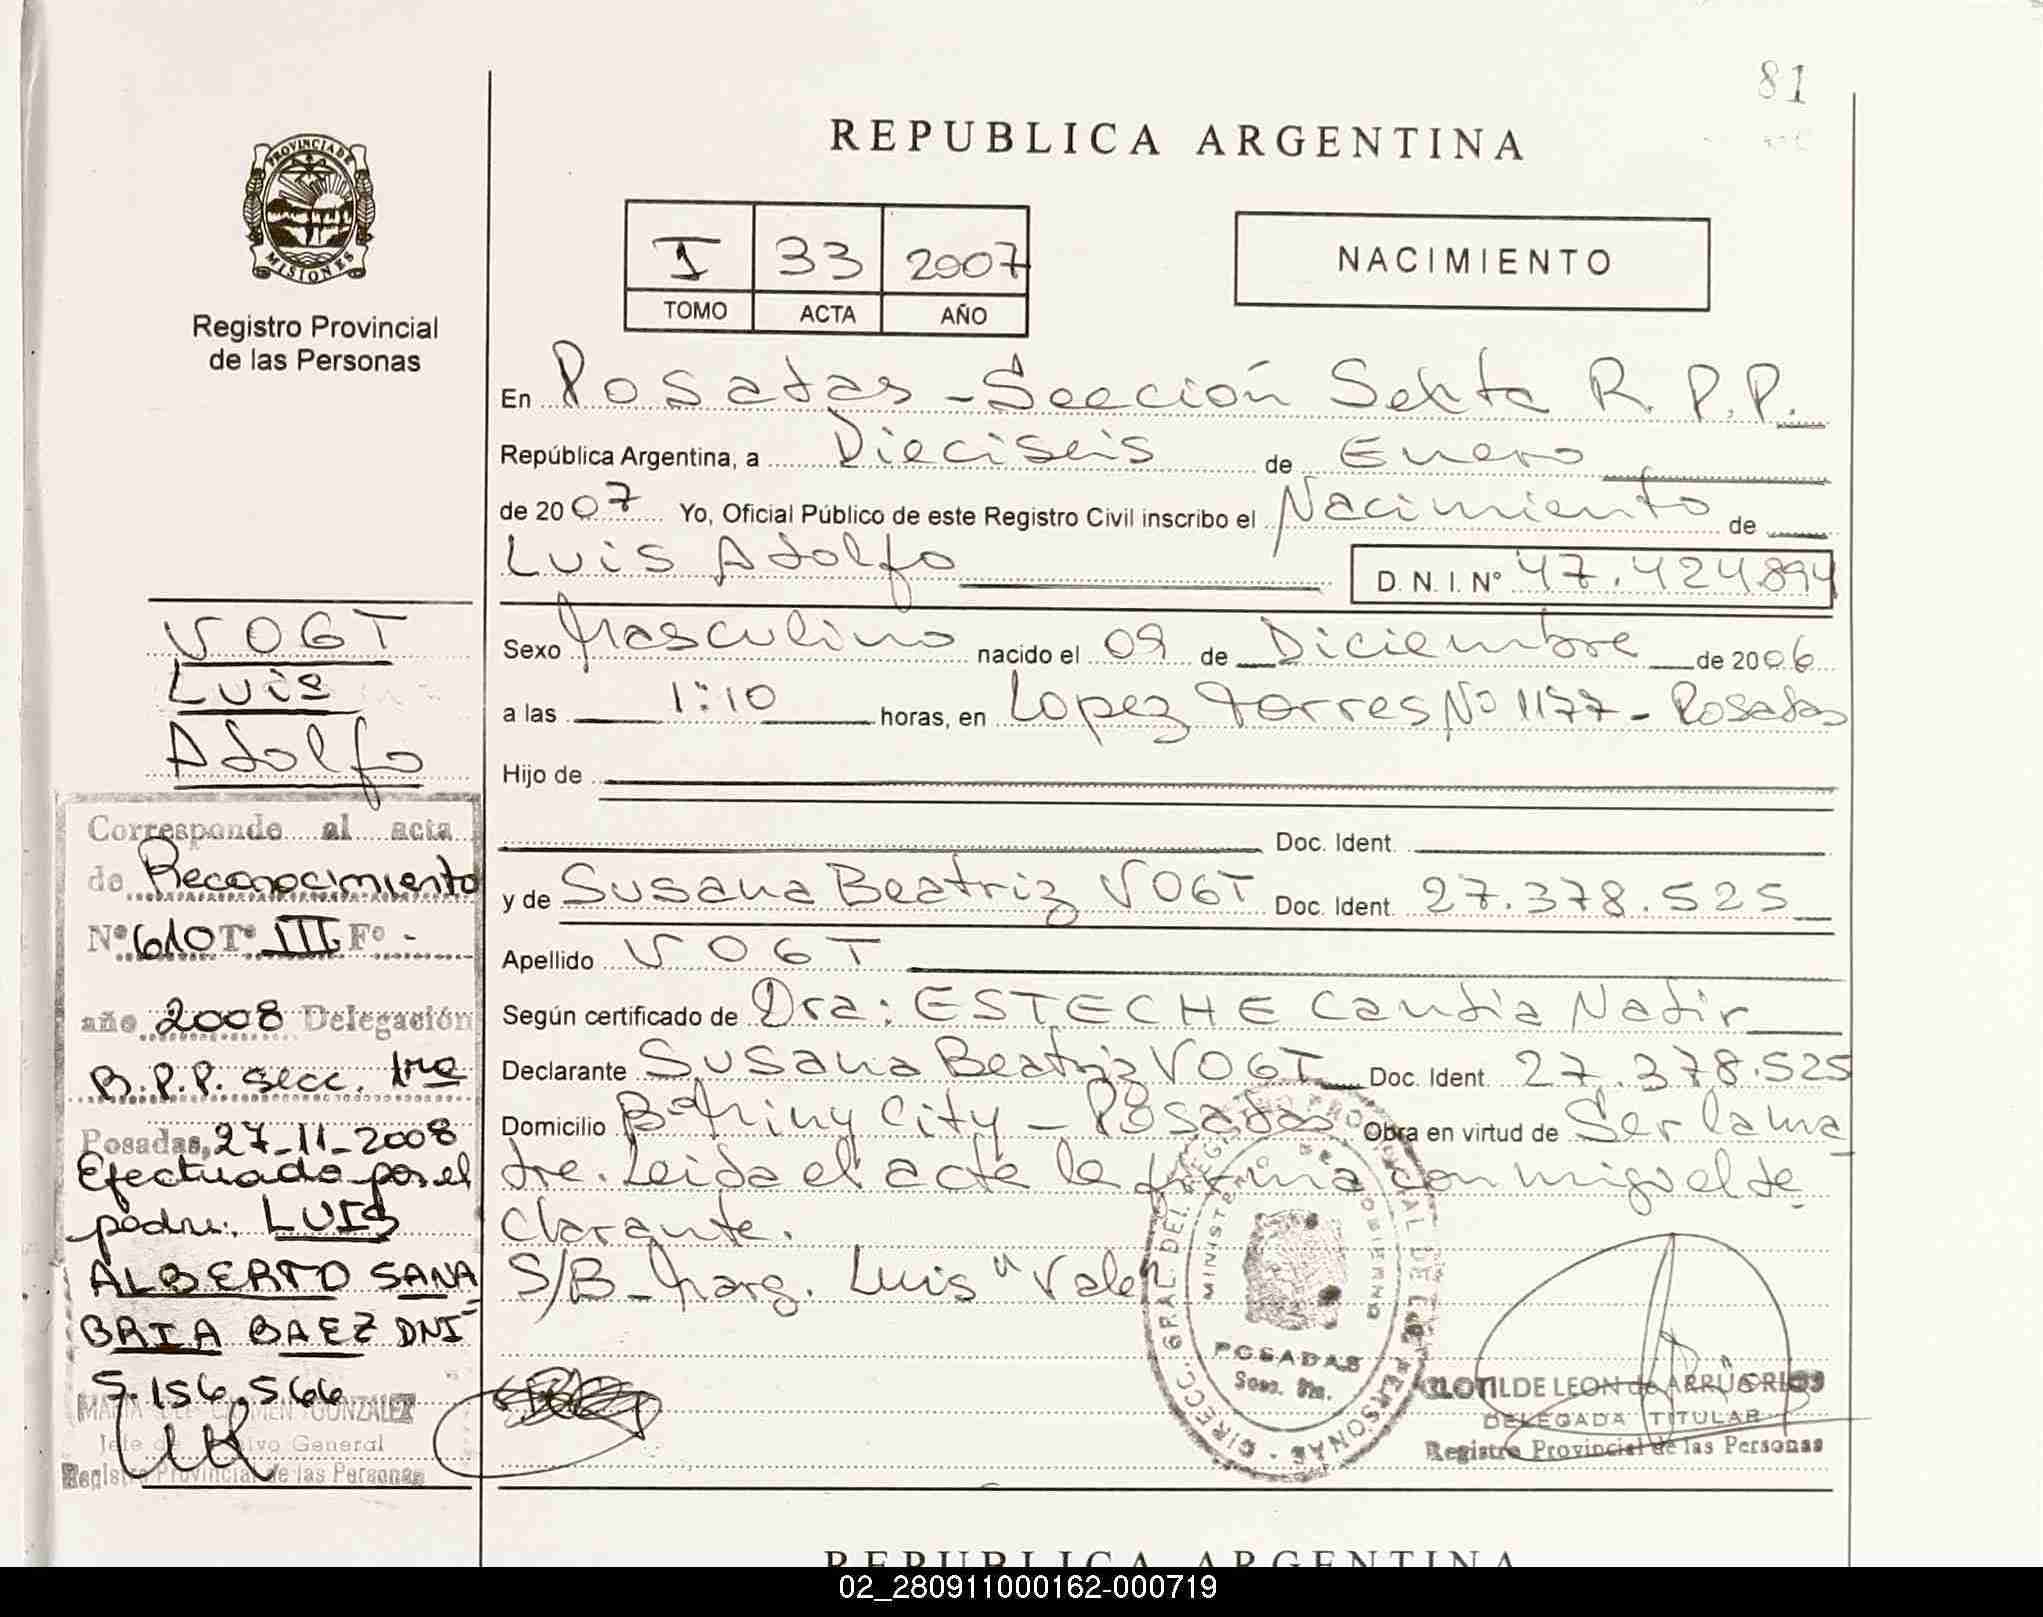 81
REPUBLICA ARGENTINA
PROVINCIA DE
MISIONES
Registro Provincial
de las Personas
I 33 2007
TOMO ACTA AÑO
NACIMIENTO
En Posadas - Sección Sexta R.P.P.
República Argentina, a Dieciseis de Enero
de 2007 Yo, Oficial Público de este Registro Civil inscribo el Nacimiento de
Luis Adolfo D.N.I.N° 47.424.894
Sexo Masculino nacido el 09 de Diciembre de 2006
a las 1:10 horas, en Lopez Torres No 1177 - Posadas
Hijo de
Doc. Ident.
y de Susana Beatriz VOGT Doc. Ident. 27.378.525
Apellido VOGT
Según certificado de Dra: ESTECHE Candia Nadir
Declarante Susana Beatriz VOGT Doc. Ident. 27.378.525
Domicilio B° Hiny City - Posadas Obra en virtud de Ser la ma
dre. Leida el acta la firma con migo el de
clarante.
S/B - Marg. Luis "Vale
VOGT
Luis
Adolfo
Corresponde al acta
de Reconocimiento
N° 610 T° III F° -
año 2008 Delegación
R.P.P. secc. 1ra
Posadas, 27-11-2008
Efectuado por el
padre: LUIS
ALBERTO SANA
BRIA BAEZ DNI
5.156.566
MARIA DEL CARMEN GONZALEZ
Jefe de Archivo General
Registro Provincial de las Personas
DIRECC. GRAL. DEL REGISTRO PROVINCIAL DE LAS PERSONAS
MINISTERIO DE GOBIERNO
POSADAS
Secc. 6ta.
CLOTILDE LEON de ARRUA RIOS
DELEGADA TITULAR
Registro Provincial de las Personas
REPUBLICA ARGENTINA
02_280911000162-000719